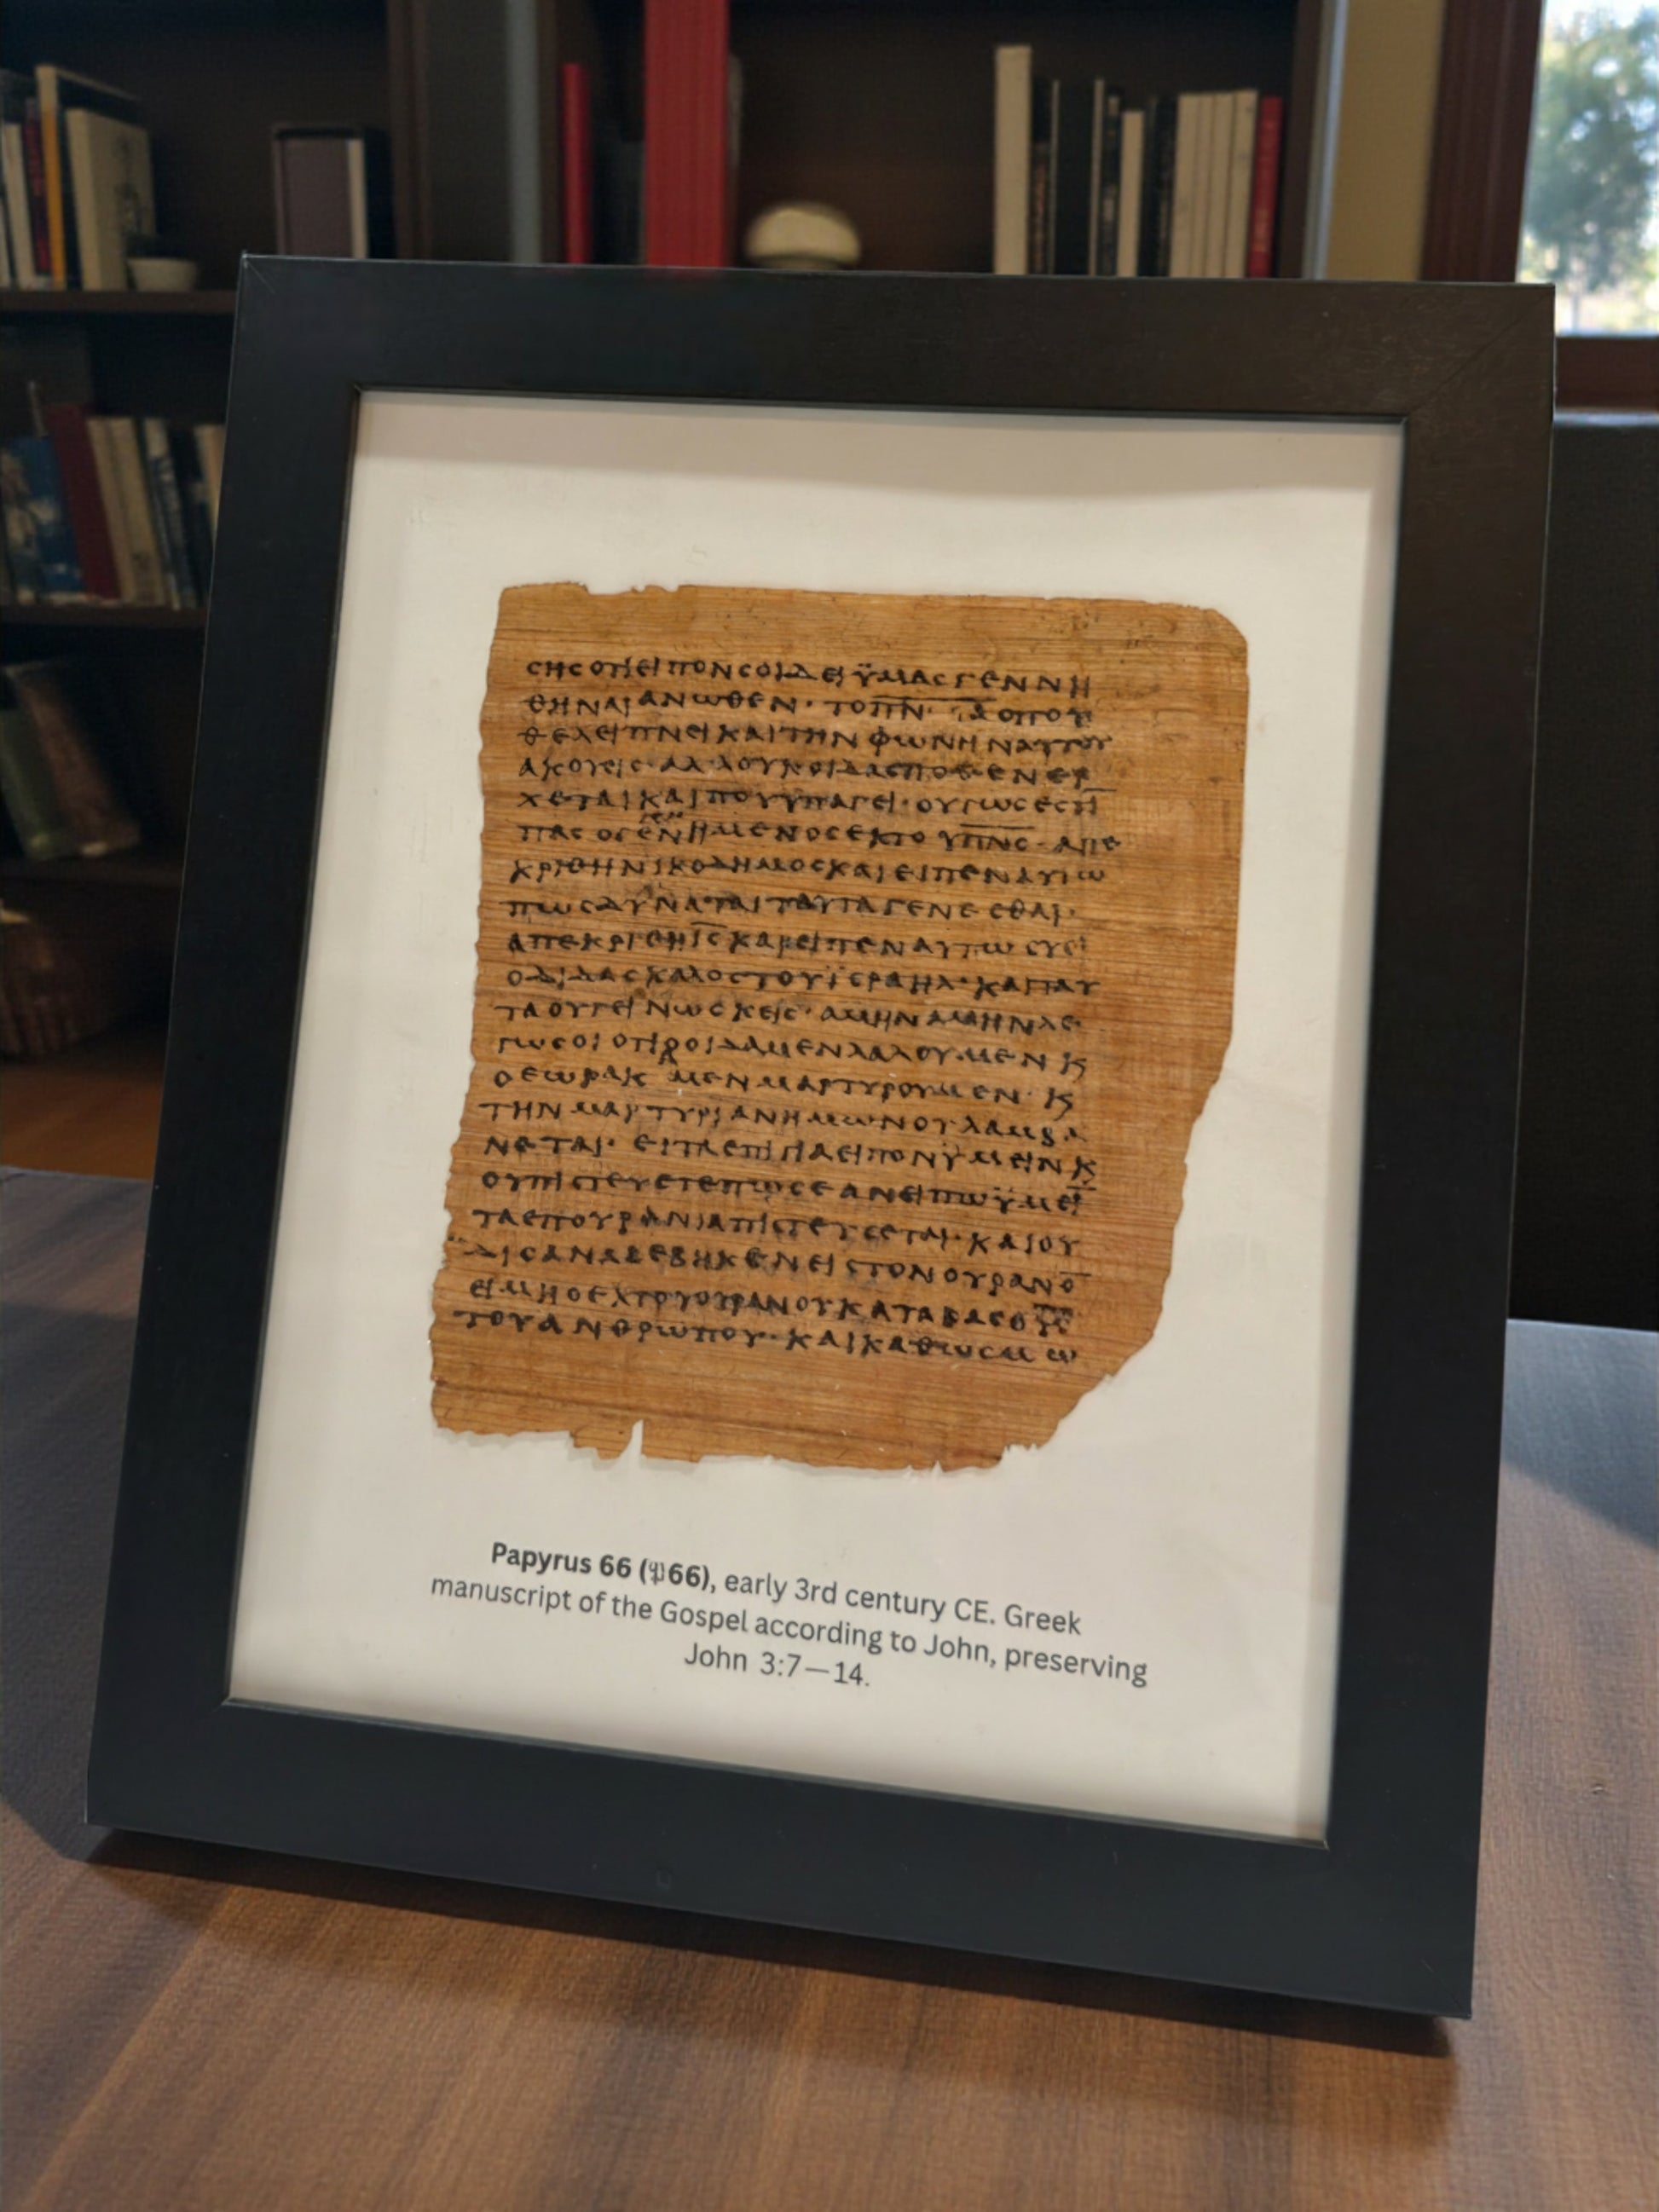 ϲηϲοτιειπονϲοιδειϋμαϲγεννη
θηναιανωθεν· το̅π̅ν̅ οπου
θελειπνεικαιτηνφωνηναυτου
ακουειϲ·αλλουκοιδαϲποθενερ
χεταικαιπουυπαγει·ουτωϲεϲτι̅
παϲογεγεννημενοϲεκτουπ̅ν̅ϲ̅·απε
κριθηνικοδημοϲκαιειπεναυτω
πωϲδυναταιταυταγενεϲθαι·
απεκριθηι̅ϲ̅καιειπεναυτωϲυει
οδιδαϲκαλοϲτουϊϲραηλ·καιταυ
ταουγεινωϲκειϲ·αμηναμηνλε
γωϲοιοτιοοιδαμενλαλουμενκ
οεωρακ μενμαρτυρουμεν·κ
τηνμαρτυριανημωνουλαμβα
νεται· ειταεπιγιαειπονϋμεινκ
ουπιϲτευετεπωϲεανειπωϋμει̅
ταεπουρανιαπιϲτευϲεται·καιου
διϲαναβεβηκενειϲτονουρανο̅
ειμηοεκτουουρανουκαταβαϲουϲ
τουανθρωπου·καικαθωϲμω
Papyrus 66 (𝔓66), early 3rd century CE. Greek
manuscript of the Gospel according to John, preserving
John 3:7—14.